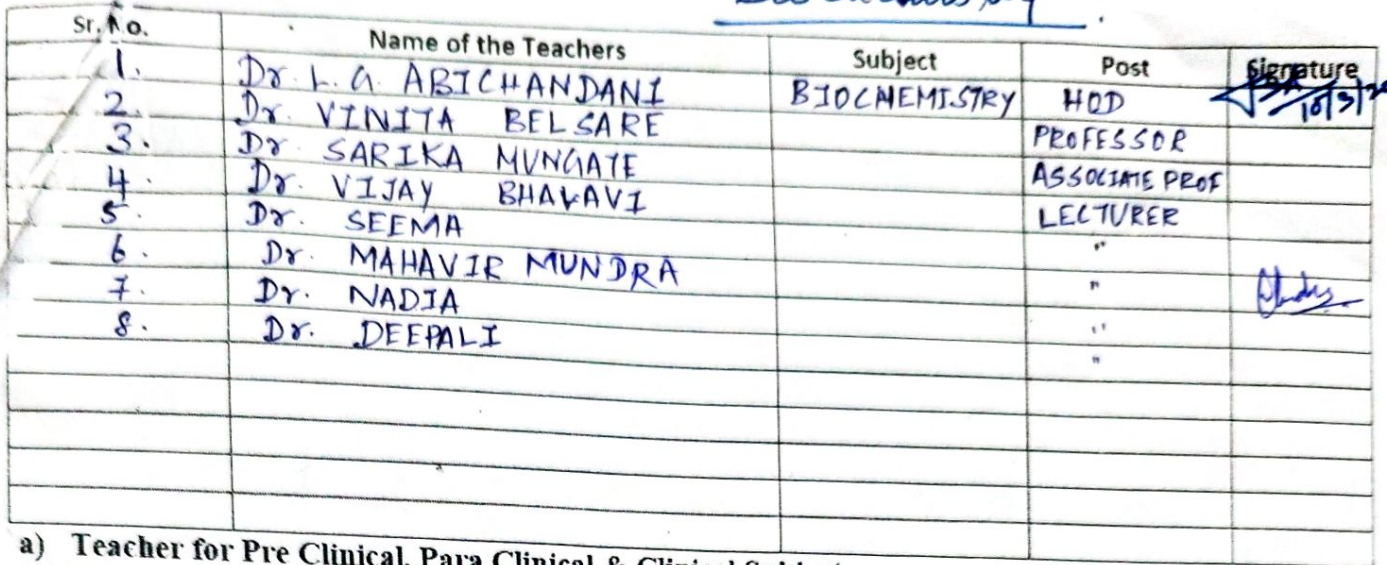 Biochemistry
Sr. No. Name of the Teachers Subject Post Signature
1. Dr. L. G. ABICHANDANI BIOCHEMISTRY HOD
2. Dr. VINITA BELSARE PROFESSOR
3. Dr. SARIKA MUNGATE ASSOCIATE PROF
4. Dr. VIJAY LECTURER
5. Dr. SEEMA "
6. Dr. MAHAVIR MUNDRA "
7. Dr. NADIA "
8. Dr. DEEPALI "
a) Teacher for Pre Clinical, Para Clinical & Clinical